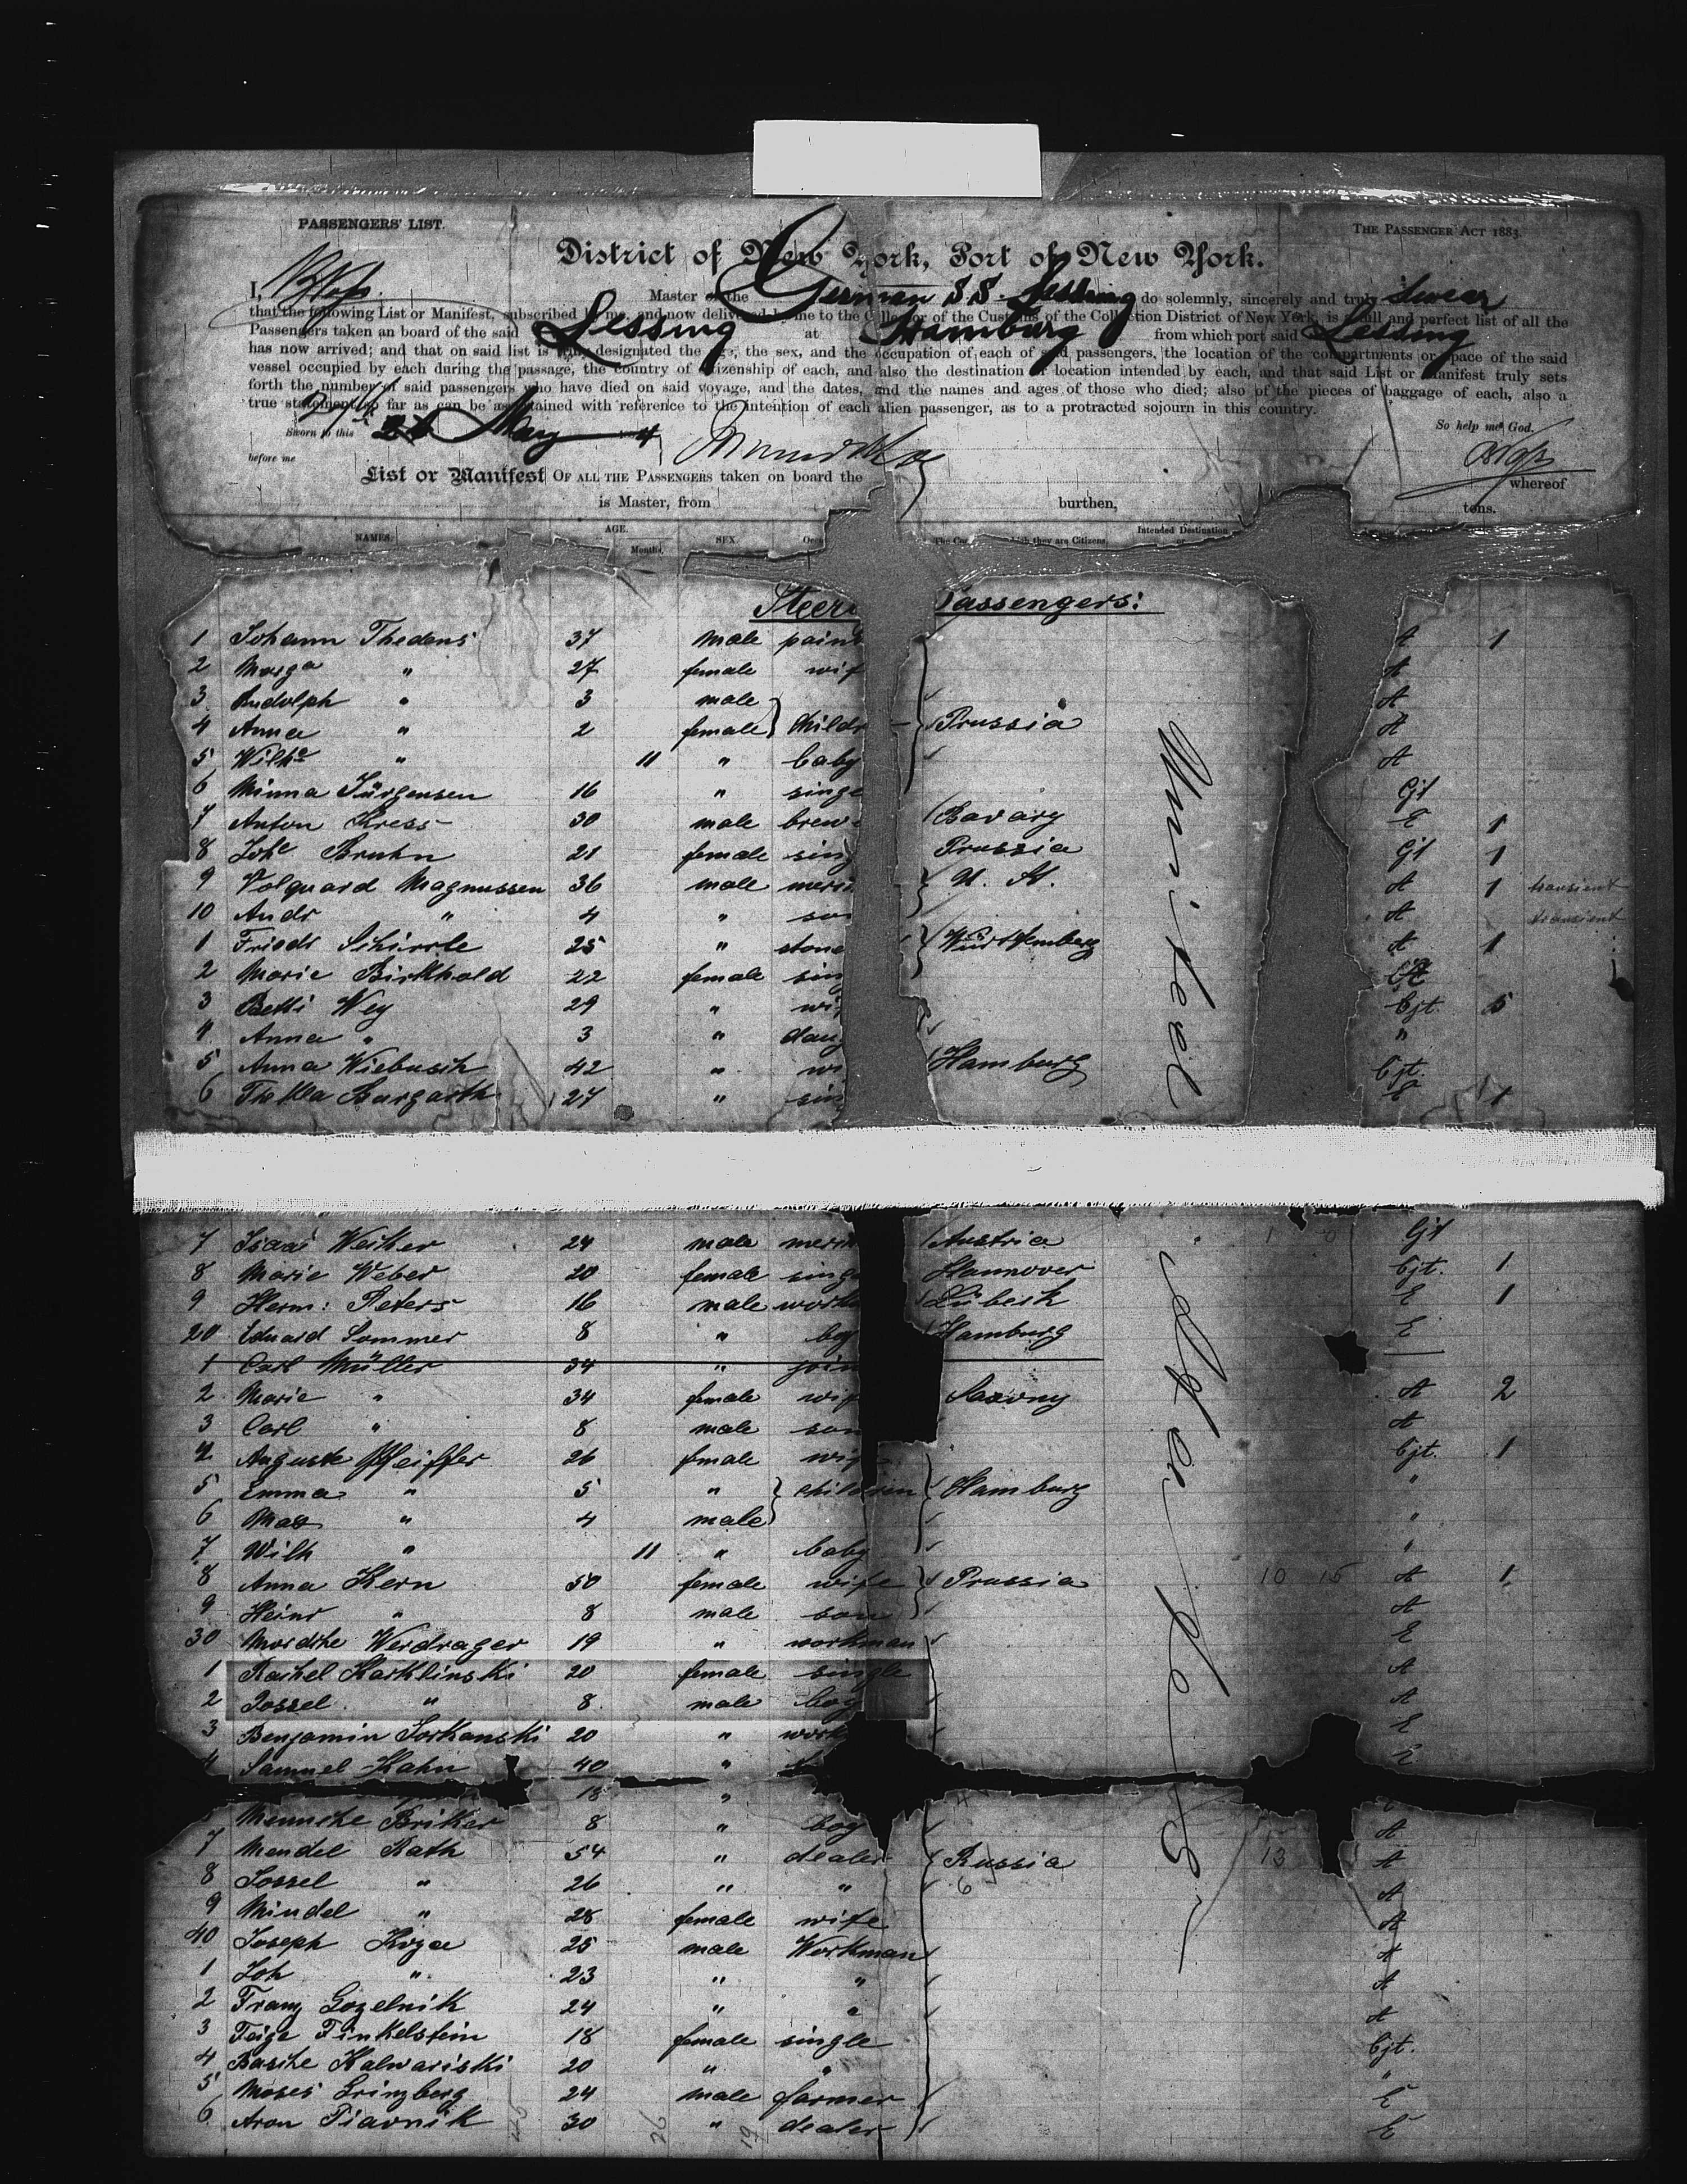 PASSENGERS' LIST.
THE PASSENGER ACT 1883.
District of New York, Port of New York.
I, Master of the German S.S. Lessing do solemnly, sincerely and truly swear
that the following List or Manifest, subscribed by me, and now delivered by me to the Collector of the Customs of the Collection District of New York, is a full and perfect list of all the
Passengers taken on board of the said Lessing at Hamburg from which port said Lessing
has now arrived; and that on said list is truly designated the age, the sex, and the occupation of each of said passengers, the location of the compartments or space of the said
vessel occupied by each during the passage, the country of citizenship of each, and also the destination or location intended by each, and that said List or Manifest truly sets
forth the number of said passengers who have died on said voyage, and the dates, and the names and ages of those who died; also of the pieces of baggage of each, also a
true statement so far as can be ascertained with reference to the intention of each alien passenger, as to a protracted sojourn in this country.
Sworn to this 26 May 4
So help me God.
before me
List or Manifest OF ALL THE PASSENGERS taken on board the whereof
is Master, from burthen, tons.
NAMES. AGE. Months. SEX. Occu they are Citizens. Intended Destination or
Steer Passengers:
1 Johann Thedens 37 male pain A 1
2 Marga " 27 female wif A
3 Rudolph " 3 male A
4 Anna " 2 female childr Prussia A
5 Wilhe " 11 " baby A
6 Minna Jürgensen 16 " singe Cjt
7 Anton Kress 30 male brew Bavary E 1
8 Johe Bruhn 21 female sing Prussia Cjt 1
9 Volquard Magnussen 36 male merch U. St. A 1 transient
10 Andr " 4 " son A transient
1 Friedr Schürrle 25 " stone Württemberg A 1
2 Marie Birkhold 22 female sin
3 Betti Wey 29 " wif Cjt. 5
4 Anna " 3 " daug "
5 Anna Wiebusch 42 " wi Hamburg Cjt.
6 Thekla Burgarth 27 " sin E 1
7 Isaac Weiker 24 male merch Austria Cjt
8 Marie Weber 20 female singe Hannover Cjt. 1
9 Herm: Peters 16 male work Lübeck E 1
20 Eduard Sommer 8 " boy Hamburg E
1 Carl Müller 34 " join
2 Marie " 34 female wif Saxony A 2
3 Carl " 8 male son A
4 Auguste Pfeiffer 26 female wif Cjt. 1
5 Emma " 5 " children Hamburg "
6 Max " 4 male "
7 Wilh " 11 " baby "
8 Anna Kern 50 female wife Prussia 10 15 A 1
9 Heinr " 8 male son A
30 Mordche Werdrager 19 " workman E
1 Rachel Karklinski 20 female single A
2 Jossel " 8 male boy A
3 Benjamin Sorkanski 20 " work E
4 Samuel Kahn 40 " E
18 "
Mensche Briker 8 " boy A
7 Mendel Rath 54 " dealer Russia 13 A
8 Jossel " 26 " " 6 A
9 Mindel " 28 female wife A
40 Joseph Koza 25 male Workman A
1 Joh " 23 " " A
2 Franz Gozelnik 24 " " A
3 Feige Finkelstein 18 female single Cjt.
4 Basche Kalwariski 20 " " "
5 Moses Grinzberg 24 male farmer E
6 Aron Piavnik 30 " dealer E